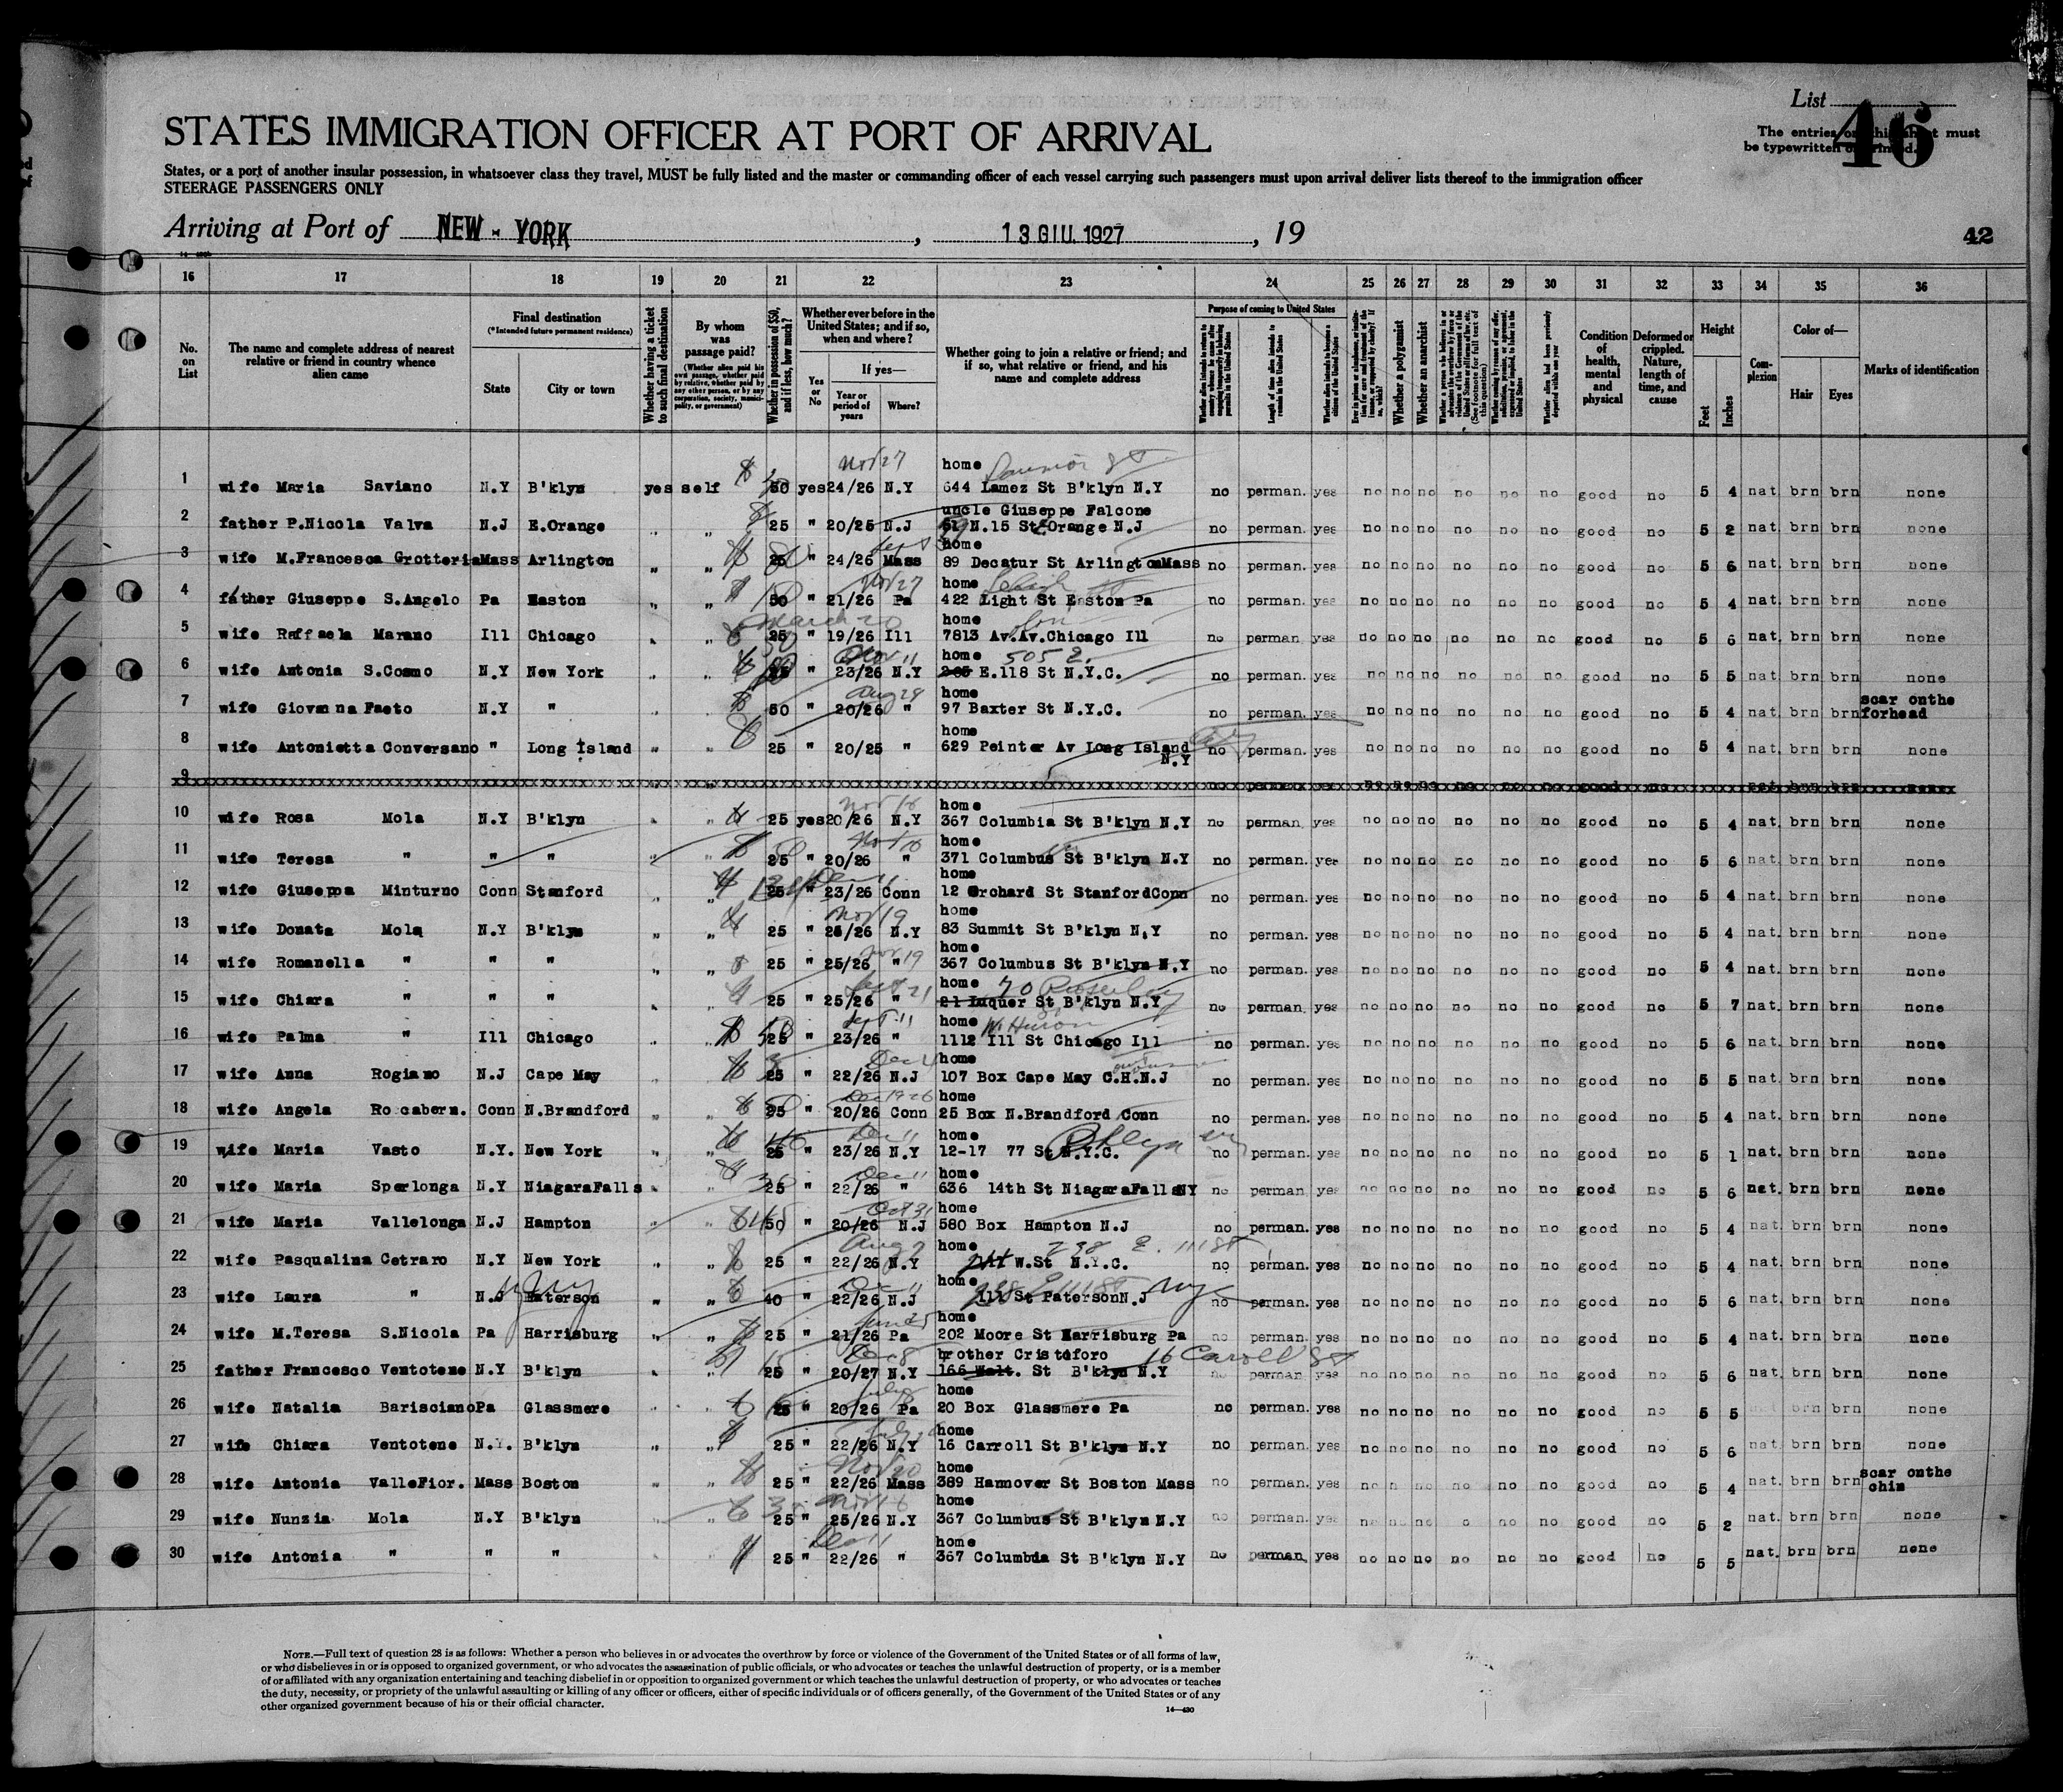 List 46
The entries on this sheet must
be typewritten or printed.
STATES IMMIGRATION OFFICER AT PORT OF ARRIVAL
States, or a port of another insular possession, in whatsoever class they travel, MUST be fully listed and the master or commanding officer of each vessel carrying such passengers must upon arrival deliver lists thereof to the immigration officer
STEERAGE PASSENGERS ONLY
Arriving at Port of NEW - YORK, 13 GIU. 1927, 19
42
16 17 18 19 20 21 22 23 24 25 26 27 28 29 30 31 32 33 34 35 36
No. on List
The name and complete address of nearest relative or friend in country whence alien came
Final destination
(*Intended future permanent residence)
State
City or town
Whether having a ticket to such final destination
By whom was passage paid?
(Whether alien paid his own passage, whether paid by relative, whether paid by any other person, or by any corporation, society, municipality, or government)
Whether in possession of $50, and if less, how much?
Whether ever before in the United States; and if so, when and where?
Yes or No
If yes—
Year or period of years
Where?
Whether going to join a relative or friend; and if so, what relative or friend, and his name and complete address
Purpose of coming to United States
Length of time alien intends to remain in the United States
Whether alien intends to become a citizen of the United States
Whether a polygamist
Whether an anarchist
Whether alien had been previously deported within one year
Condition of health, mental and physical
Deformed or crippled. Nature, length of time, and cause
Height
Feet
Inches
Complexion
Color of—
Hair
Eyes
Marks of identification
Nov 27
home
1 wife Maria Saviano N.Y B'klyn yes self 50 yes 24/26 N.Y 644 Lamez St B'klyn N.Y no perman. yes no no no no no no good no 5 4 nat. brn brn none
uncle Giuseppe Falcone
2 father P.Nicola Valva N.J E.Orange " " 25 " 20/25 N.J N.15 St Orange N.J no perman. yes no no no no no no good no 5 2 nat. brn brn none
home
3 wife M.Francesca Grotteria Mass Arlington " " 25 " 24/26 Mass 89 Decatur St Arlington Mass no perman. yes no no no no no no good no 5 6 nat. brn brn none
Nov 27
home
4 father Giuseppe S.Angelo Pa Easton " " 50 " 21/26 Pa 422 Light St Easton Pa no perman. yes no no no no no no good no 5 4 nat. brn brn none
March 20
home
5 wife Raffaela Marano Ill Chicago " " 25 " 19/26 Ill 7813 Av.Av.Chicago Ill no perman. yes no no no no no no good no 5 6 nat. brn brn none
home 505 E.
6 wife Antonia S.Cosmo N.Y New York " " " 23/26 N.Y E.118 St N.Y.C. no perman. yes no no no no no no good no 5 5 nat. brn brn none
Aug 29
home
7 wife Giovanna Faeto N.Y " " " 50 " 20/26 " 97 Baxter St N.Y.C. no perman. yes no no no no no no good no 5 4 nat. brn brn scar onthe forhead
home
8 wife Antonietta Conversano " Long Island " " 25 " 20/25 " 629 Peinter Av Long Island N.Y no perman. yes no no no no no no good no 5 4 nat. brn brn none
9 no perman. yes no no no no no no good no nat. brn brn none
home
10 wife Rosa Mola N.Y B'klyn " " 25 yes 20/26 N.Y 367 Columbia St B'klyn N.Y no perman. yes no no no no no no good no 5 4 nat. brn brn none
home
11 wife Teresa " " " " " 25 " 20/26 " 371 Columbus St B'klyn N.Y no perman. yes no no no no no no good no 5 6 nat. brn brn none
home
12 wife Giuseppa Minturno Conn Stanford " " 25 " 23/26 Conn 12 Orchard St Stanford Conn no perman. yes no no no no no no good no 5 4 nat. brn brn none
Nov 19
home
13 wife Donata Mola N.Y B'klyn " " 25 " 25/26 N.Y 83 Summit St B'klyn N.Y no perman. yes no no no no no no good no 5 4 nat. brn brn none
Nov 19
home
14 wife Romanella " " " " " 25 " 25/26 " 367 Columbus St B'klyn N.Y no perman. yes no no no no no no good no 5 4 nat. brn brn none
home 70
15 wife Chiara " " " " " 25 " 25/26 " 21 Luquer St B'klyn N.Y no perman. yes no no no no no no good no 5 7 nat. brn brn none
home W. Huron
16 wife Palma " Ill Chicago " " 25 " 23/26 " 1112 Ill St Chicago Ill no perman. yes no no no no no no good no 5 6 nat. brn brn none
home
17 wife Anna Rogiano N.J Cape May " " 25 " 22/26 N.J 107 Box Cape May C.H.N.J no perman. yes no no no no no no good no 5 5 nat. brn brn none
Dec 1926
home
18 wife Angela Roccabern. Conn N.Brandford " " 25 " 20/26 Conn 25 Box N.Brandford Conn no perman. yes no no no no no no good no 5 4 nat. brn brn none
Dec 11
home
19 wife Maria Vasto N.Y. New York " " 25 " 23/26 N.Y 12-17 77 St N.Y.C. Bklyn no perman. yes no no no no no no good no 5 1 nat. brn brn none
Dec 11
home
20 wife Maria Sperlonga N.Y NiagaraFalls " " 25 " 22/26 " 636 14th St NiagaraFalls NY no perman. yes no no no no no no good no 5 6 nat. brn brn none
Oct 31
home
21 wife Maria Vallelonga N.J Hampton " " 50 " 20/26 N.J 580 Box Hampton N.J no perman. yes no no no no no no good no 5 4 nat. brn brn none
Aug 7
home 238 E. 111 St
22 wife Pasqualina Cetraro N.Y New York " " 25 " 22/26 N.Y W.St N.Y.C. no perman. yes no no no no no no good no 5 4 nat. brn brn none
Dec 11
home
23 wife Laura " N.J Paterson " " 40 " 22/26 N.J St Paterson N.J no perman. yes no no no no no no good no 5 6 nat. brn brn none
home
24 wife M.Teresa S.Nicola Pa Harrisburg " " 25 " 21/26 Pa 202 Moore St Harrisburg Pa no perman. yes no no no no no no good no 5 4 nat. brn brn none
Dec 8
brother Cristoforo 16 Caroll St
25 father Francesco Ventotene N.Y B'klyn " " 25 " 20/27 N.Y 166 Walt. St B'klyn N.Y no perman. yes no no no no no no good no 5 6 nat. brn brn none
home
26 wife Natalia Barisciano Pa Glassmere " " 25 " 20/26 Pa 20 Box Glassmere Pa no perman. yes no no no no no no good no 5 5 brn brn none
home
27 wife Chiara Ventotene N.Y. B'klyn " " 25 " 22/26 N.Y 16 Carroll St B'klyn N.Y no perman. yes no no no no no no good no 5 6 nat. brn brn none
Nov 20
home
28 wife Antonia ValleFior. Mass Boston " 25 " 22/26 Mass 389 Hannover St Boston Mass no perman. yes no n no no no no good no 5 4 nat. brn brn scar onthe chin
home
29 wife Nunzia Mola N.Y B'klyn " " 25 " 25/26 N.Y 367 Columbus St B'klyn N.Y no perman. yes no no no o no no good no 5 2 nat. brn brn none
Dec 11
home
30 wife Antonia " " " " 25 " 22/26 " 367 Columbia St B'klyn N.Y no perman. yes no no no no no no good no 5 5 nat. brn brn none
NOTE.—Full text of question 28 is as follows: Whether a person who believes in or advocates the overthrow by force or violence of the Government of the United States or of all forms of law,
or who disbelieves in or is opposed to organized government, or who advocates the assassination of public officials, or who advocates or teaches the unlawful destruction of property, or is a member
of or affiliated with any organization entertaining and teaching disbelief in or opposition to organized government or which teaches the unlawful destruction of property, or who advocates or teaches
the duty, necessity, or propriety of the unlawful assaulting or killing of any officer or officers, either of specific individuals or of officers generally, of the Government of the United States or of any
other organized government because of his or their official character.
14—430